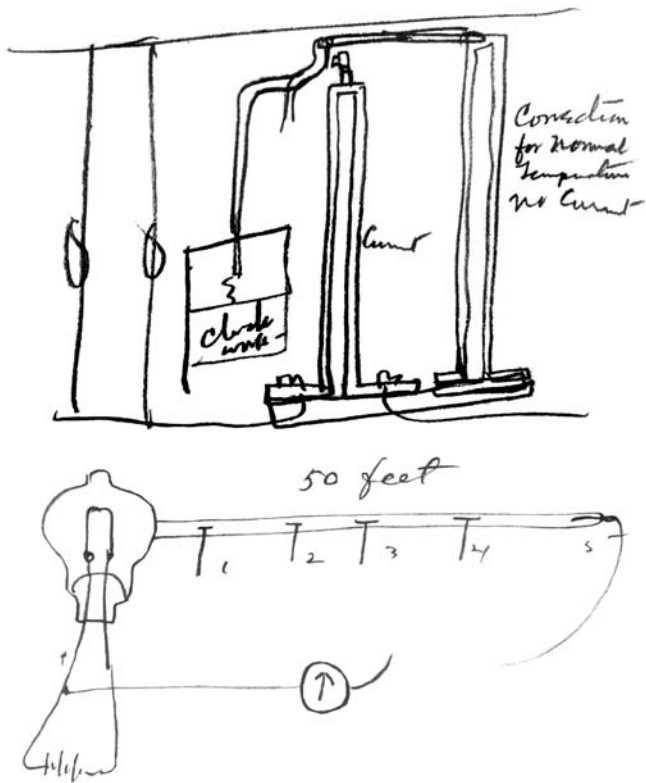 Correction
for Normal
Temperature
no Current
Current
Clock
work
50 feet
1 2 3 4 5